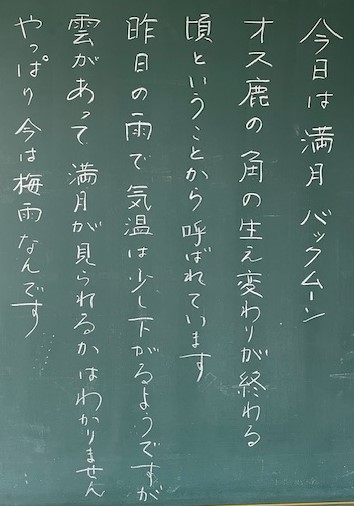 今日は満月 バックムーン
オス鹿の角の生え変わりが終わる
頃ということから呼ばれています
昨日の雨で気温は少し下がるようですが
雲があって満月が見られるかはわかりません
やっぱり今は梅雨なんです